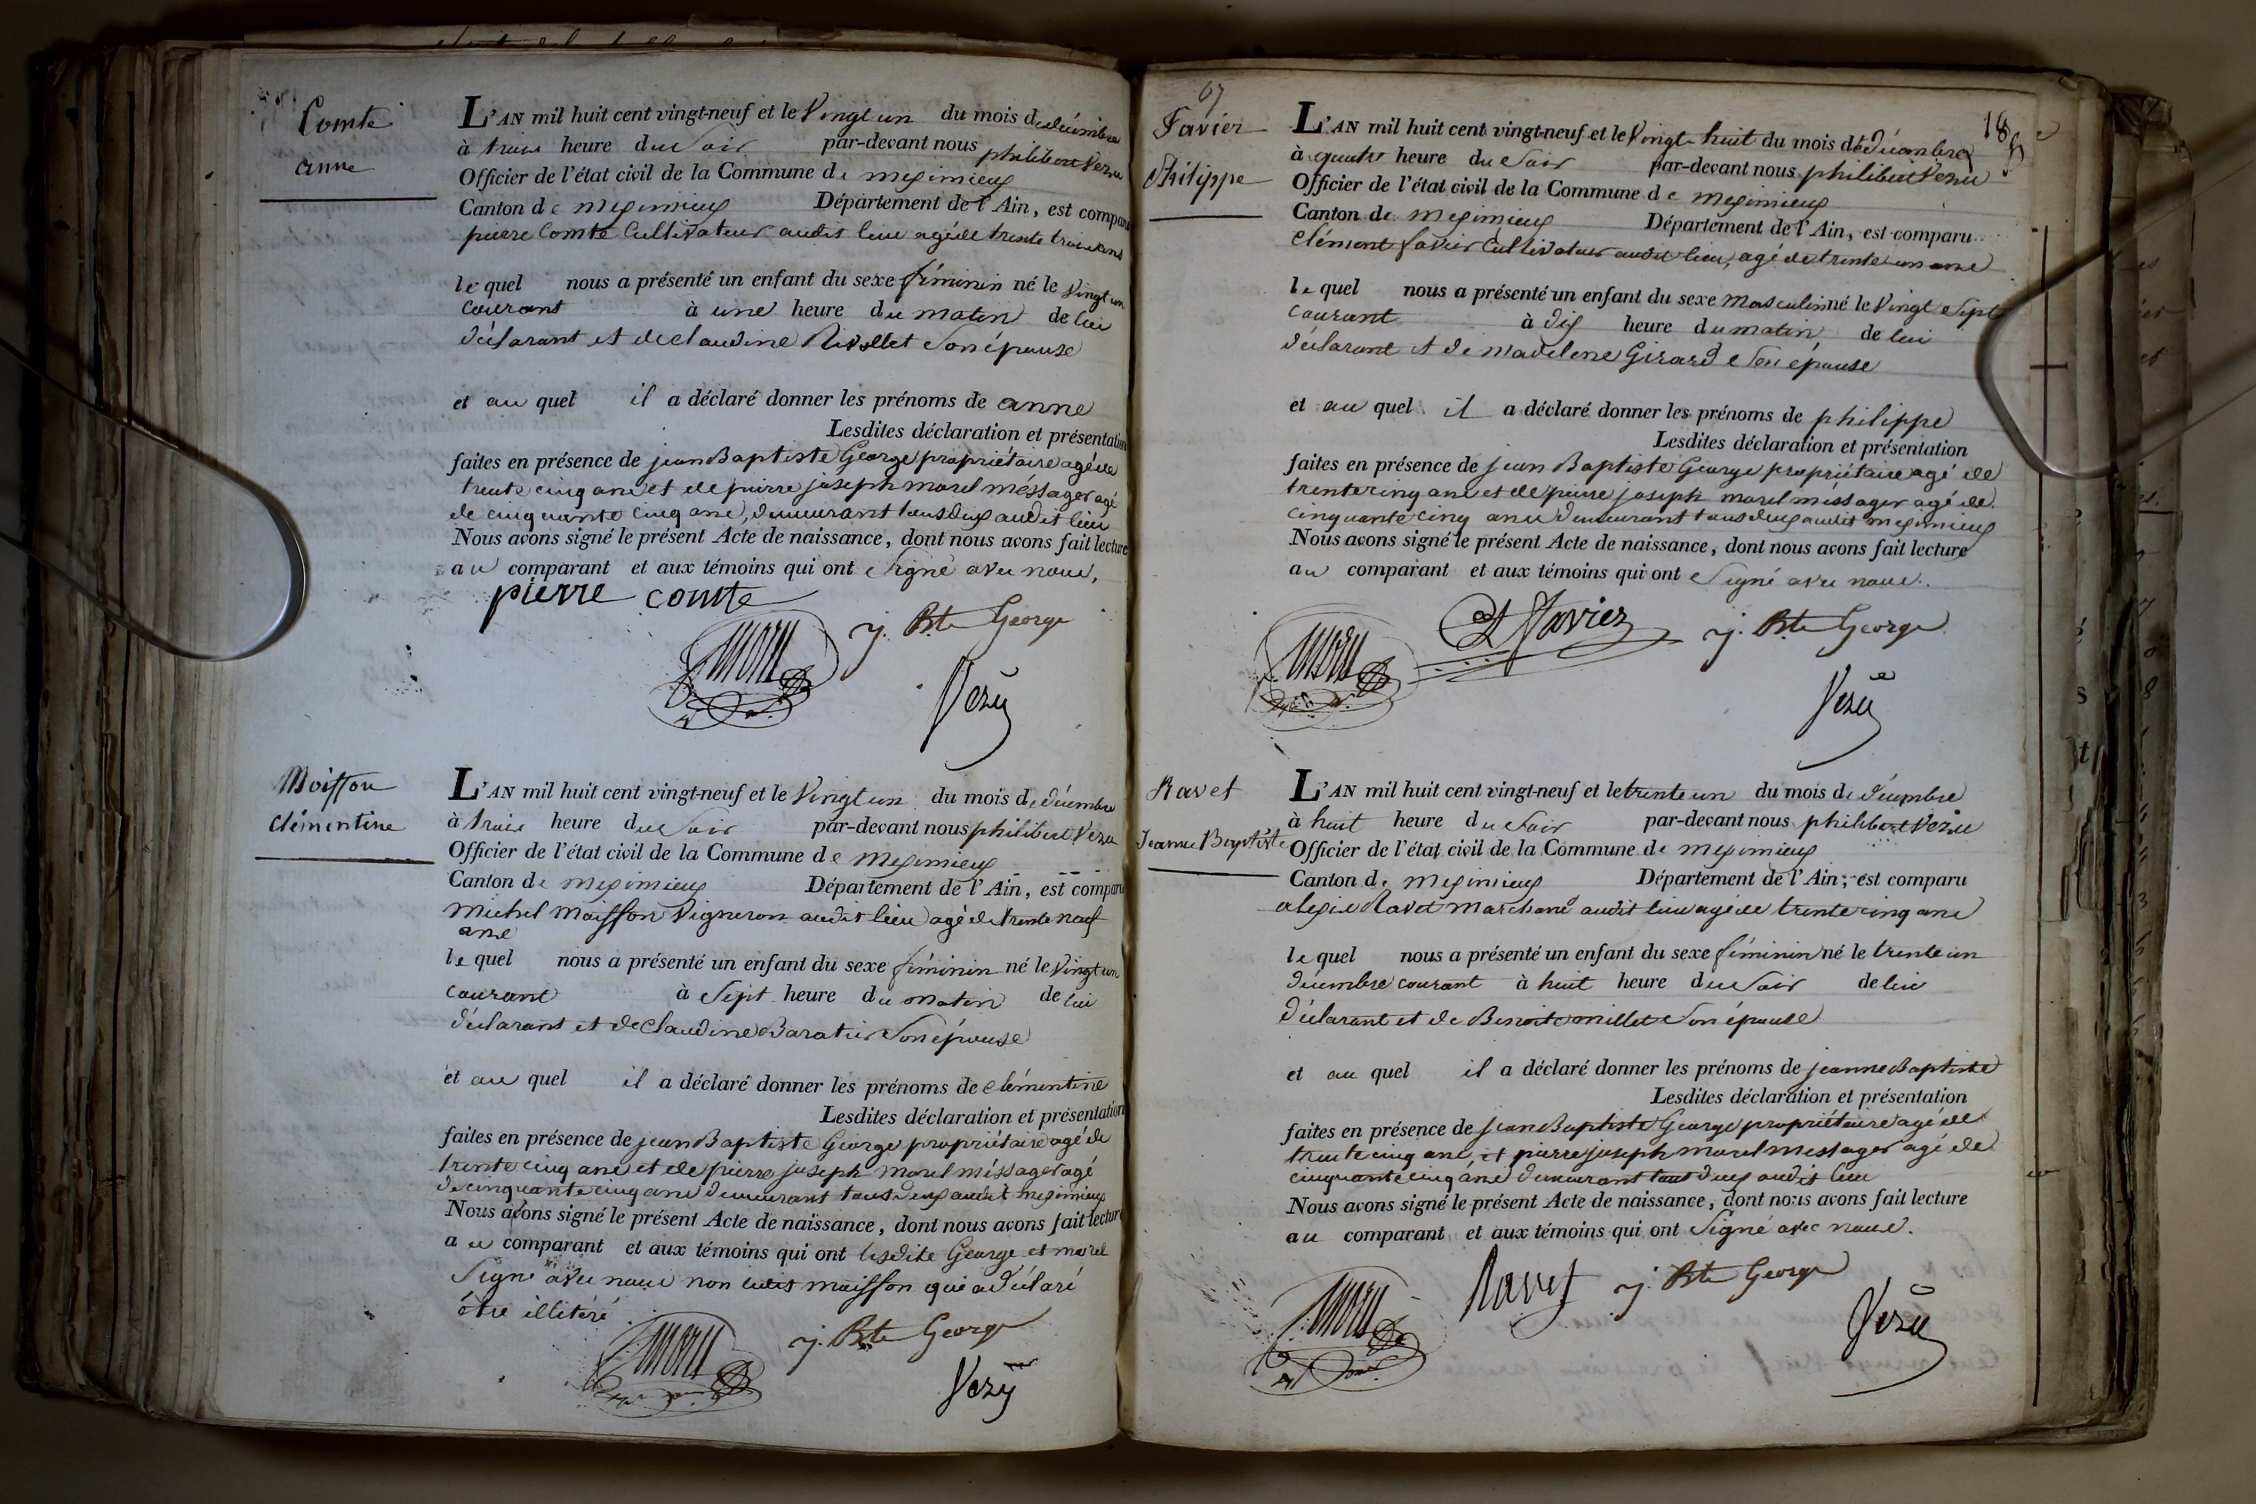 Comte
anne
L'AN mil huit cent vingt-neuf et le Vingt un du mois de décembre
à trois heure du Soir par-devant nous philibert Vezu
Officier de l'état civil de la Commune de meximieux
Canton de meximieux Département de l'Ain, est comparu
pierre Comte Cultivateur audit lieu agé de trente trois ans
le quel nous a présenté un enfant du sexe féminin né le Vingt un
courant à une heure du matin de lui
déclarant et de claudine Rivollet Son épouse
et au quel il a déclaré donner les prénoms de anne
Lesdites déclaration et présentation
faites en présence de jean Baptiste George propriétaire agé de
trente cinq ans et de pierre joseph morel méssager agé
de cinquante cinq ans, demeurant tous deux audit lieu
Nous avons signé le présent Acte de naissance, dont nous avons fait lecture
au comparant et aux témoins qui ont Signé avec nous,
pierre comte
j. Bte George
morel
Vezu
Moisson
clémentine
L'AN mil huit cent vingt-neuf et le Vingt un du mois de décembre
à trois heure du Soir par-devant nous philibert Vezu
Officier de l'état civil de la Commune de meximieux
Canton de meximieux Département de l'Ain, est comparu
Michel Moisson Vigneron audit lieu agé de trente neuf
ans
le quel nous a présenté un enfant du sexe féminin né le Vingt un
courant à Sept heure du matin de lui
déclarant et de Claudine Baratier Son épouse
et au quel il a déclaré donner les prénoms de clémentine
Lesdites déclaration et présentation
faites en présence de jean Baptiste George propriétaire agé de
trente cinq ans et de pierre joseph morel méssager agé
de cinquante cinq ans demeurant tous deux audit meximieux
Nous avons signé le présent Acte de naissance, dont nous avons fait lecture
au comparant et aux témoins qui ont lesdits George et morel
Signé avec nous non ledit moisson qui a déclaré
être illitéré
morel
j. Bte George
Vezu
67
18
Favier
Philippe
L'AN mil huit cent vingt-neuf et le Vingt huit du mois de décembre
à quatre heure du Soir par-devant nous philibert Vezu
Officier de l'état civil de la Commune de meximieux
Canton de meximieux Département de l'Ain, est comparu
clément favier Cultivateur audit lieu, agé de trente un ans
le quel nous a présenté un enfant du sexe masculin né le Vingt Sept
courant à dix heure du matin de lui
déclarant et de madelene Girard Son épouse
et au quel il a déclaré donner les prénoms de philippe
Lesdites déclaration et présentation
faites en présence de jean Baptiste George propriétaire agé de
trente cinq ans et de pierre joseph morel méssager agé de
cinquante cinq ans demeurant tous deux audit meximieux
Nous avons signé le présent Acte de naissance, dont nous avons fait lecture
au comparant et aux témoins qui ont Signé avec nous.
morel
Favier
j. Bte George
Vezu
Ravet
Jeanne Baptiste
L'AN mil huit cent vingt-neuf et le trente un du mois de décembre
à huit heure du Soir par-devant nous philibert Vezu
Officier de l'état civil de la Commune de meximieux
Canton de meximieux Département de l'Ain, est comparu
alexis Ravet marchand audit lieu agé de trente cinq ans
le quel nous a présenté un enfant du sexe féminin né le trente un
décembre courant à huit heure du Soir de lui
déclarant et de Benoite millet Son épouse
et au quel il a déclaré donner les prénoms de jeanne Baptiste
Lesdites déclaration et présentation
faites en présence de jean Baptiste George propriétaire agé de
trente cinq ans, et pierre joseph morel messager agé de
cinquante cinq ans demeurant tous deux audit lieu
Nous avons signé le présent Acte de naissance, dont nous avons fait lecture
au comparant et aux témoins qui ont Signé avec nous.
morel
Ravet
j. Bte George
Vezu